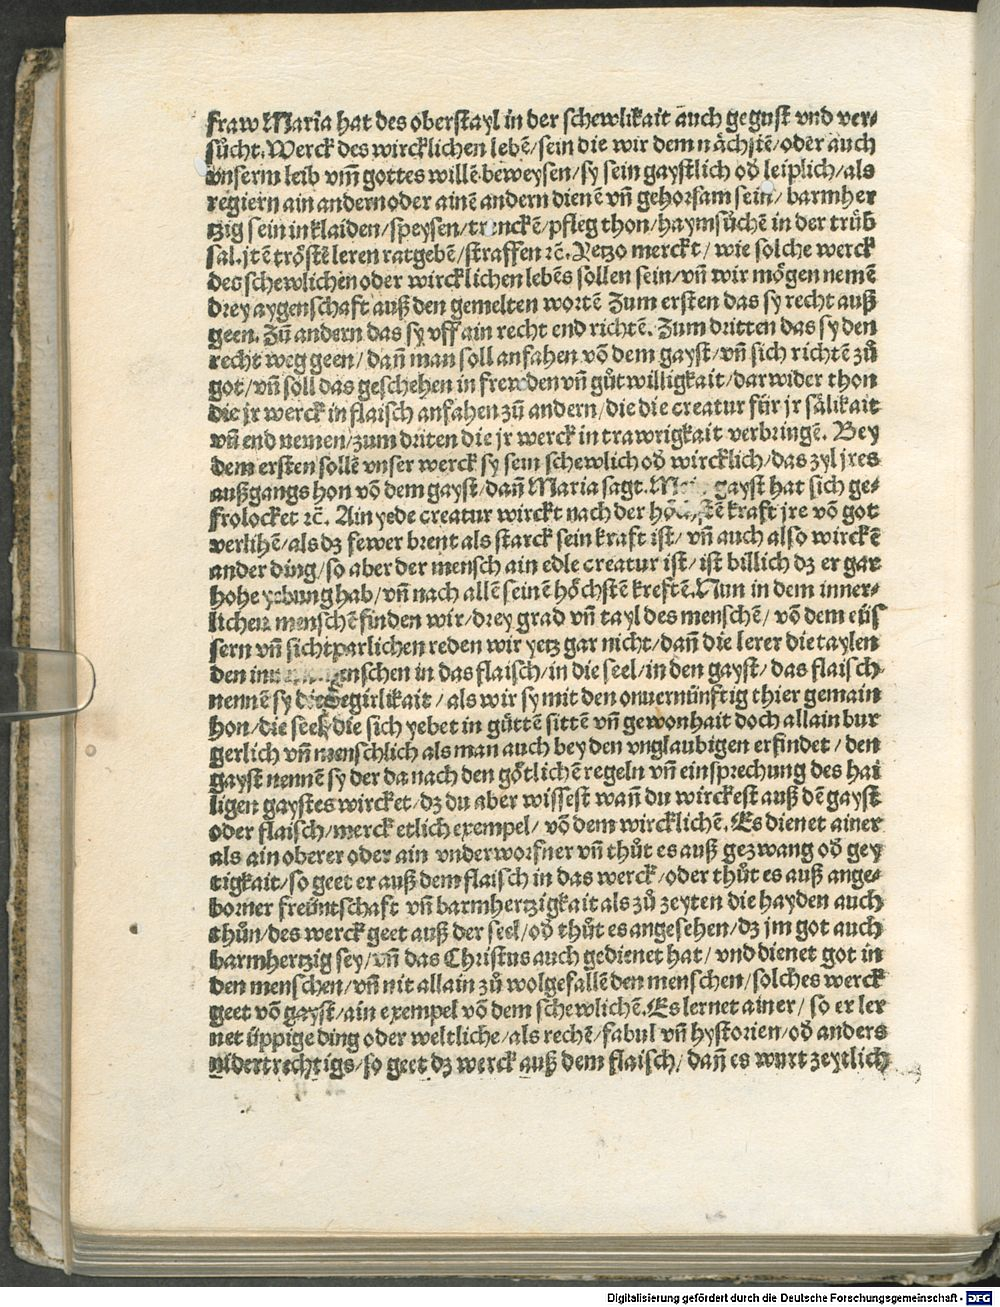 fraw Maria hat des oberstayl in der schewlikait auch gegust vnd ver⸗
sůcht. Werck des wircklichen lebē/sein die wir dem nächstē/oder auch
vnserm leib vm̄ gottes willē beweysen/sy sein gaystlich od̄ leiplich/als
regiern ain andern oder ainē andern dienē vn̄ gehorsam sein/barmher
tzig sein in klaiden/speysen/trenckē/pfleg thon/haymsůchē in der trůb
sal. jtē tröstē leren ratgebē/straffen ⁊c̄. Yetzo merckt/wie solche werck
des schewlichen oder wircklichen lebēs sollen sein/vn̄ wir mögen nemē
drey aygenschaft auß den gemelten wortē Zum ersten das sy recht auß
geen. Zū andern das sy vff ain recht end richtē. Zum dritten das sy den
recht weg geen/dan̄ man soll anfahen vō dem gayst/vn̄ sich richtē zů
got/vn̄ soll das geschehen in frewden vn̄ gůtwilligkait/darwider thon
die jr werck in flaisch anfahen zů andern/die die creatur für jr sälikait
vn̄ end nemen/zum driten die jr werck in trawrigkait verbringē. Bey
dem ersten sollē vnser werck sy sein schewlich od̄ wircklich/das zyl jres
außgangs hon vō dem gayst/dan̄ Maria sagt. Mein gayst hat sich ge⸗
frolocket ⁊c̄. Ain yede creatur wirckt nach der höchstē kraft jre vō got
verlihē/als dz fewer brent als starck sein kraft ist/vn̄ auch also wirckē
ander ding/so aber der mensch ain edle creatur ist/ist billich dz er gar
hohe yebung hab/vn̄ nach allē seinē höchstē kreftē. Nun in dem inner⸗
lichen menschē finden wir/drey grad vn̄ tayl des menschē/vō dem eüs
sern vn̄ sichtparlichen reden wir yetz gar nicht/dan̄ die lerer die taylen
den menschen in das flaisch/in die seel/in den gayst/das flaisch
nennē sy die begirlikait/als wir sy mit den onuernünftig thier gemain
hon/die seel/die sich yebet in gůttē sittē vn̄ gewonhait doch allain bur
gerlich vn̄ menschlich als man auch bey den vnglaubigen erfindet/den
gayst nennē sy der da nach den götlichē regeln vn̄ einsprechung des hai
ligen gaystes wircket/dz du aber wissest wan̄ du wirckest auß dē gayst
oder flaisch/merck etlich exempel/vō dem wircklichē. Es dienet ainer
als ain oberer oder ain vnderworfner vn̄ thůt es auß gezwang od̄ gey
tigkait/so geet er auß dem flaisch in das werck/oder thůt es auß ange⸗
borner freüntschaft vn̄ barmhertzigkait als zů zeyten die hayden auch
thůn/des werck geet auß der seel/od̄ thůt es angesehen/dz jm got auch
barmhertzig sey/vn̄ das Christus auch gedienet hat/vnd dienet got in
den menschen/vn̄ nit allain zů wolgefallē den menschen/solches werck
geet vō gayst/ain exempel vō dem schewlichē. Es lernet ainer/so er ler
net üppige ding oder weltliche/als rechē/fabul vn̄ hystorien/od̄ anders
nidertrechtigs/so geet dz werck auß dem flaisch/dan̄ es wurt zeytlich
Digitalisierung gefördert durch die Deutsche Forschungsgemeinschaft - DFG